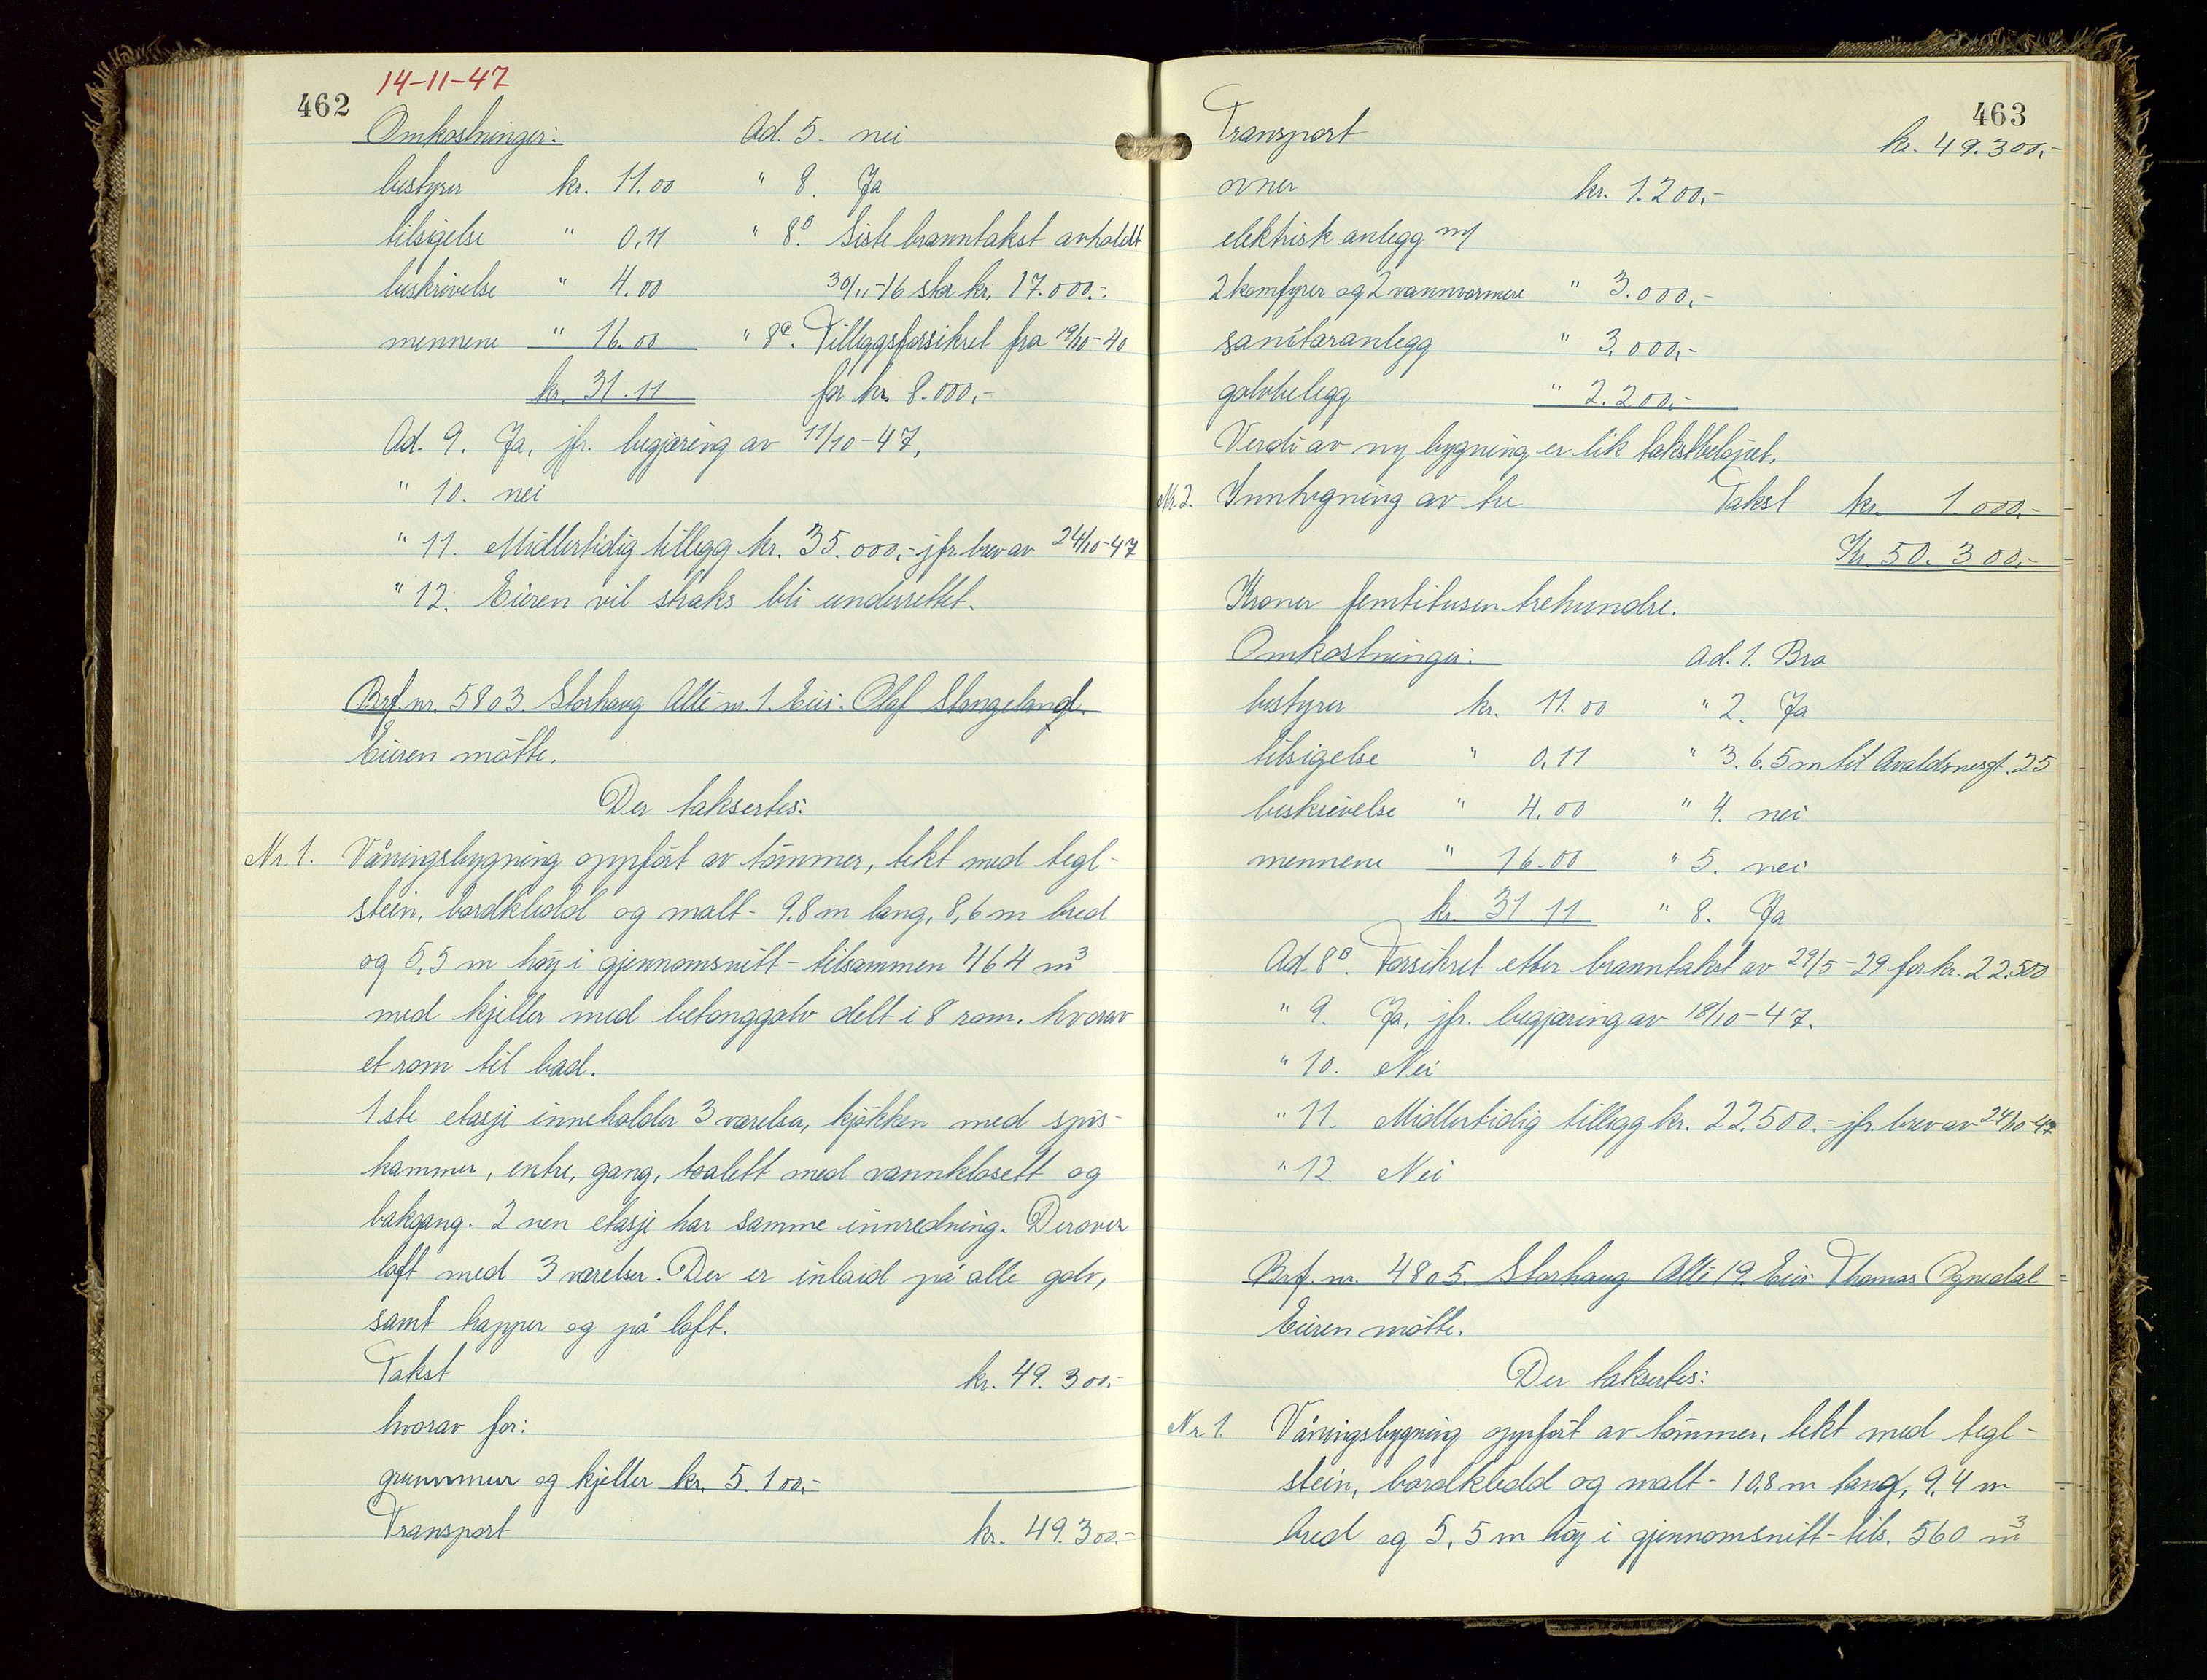 462
14-11-47
Omkostninger: Ad. 5. nei
bestyrer kr. 11.00 " 8. Ja
tilsigelse " 0,11 " 8B. Siste branntakst avholdt
beskrivelse " 4.00 30/11-16 stor kr. 17.000.-
mennene " 16.00 " 8C. Tilleggsforsikret fra 19/10-40
kr. 31.11 for kr. 8.000,-
Ad. 9. Ja, jfr. begjæring av 11/10-47.
" 10. nei
" 11. Midlertidig tillegg kr. 35.000.- jfr. brev av 24/10-47
" 12. Eieren vil straks bli underrettet.
Brf. nr. 5803. Storhaug Allé nr. 1. Eier: Olaf Stangeland.
Eieren møtte.
Der taksertes:
Nr. 1. Våningsbygning oppført av tømmer, tekt med tegl-
stein, bordkledd og malt - 9.8 m lang, 8,6 m bred
og 5,5 m høy i gjennomsnitt - tilsammen 464 m³
med kjeller med betonggolv delt i 8 rom. hvorav
et rom til bad.
1ste etasje inneholder 3 værelser, kjøkken med spis-
kammer, entre, gang, toalett med vannklosett og
bakgang. 2nen etasje har samme innredning. Derover
loft med 3 værelser. Der er inlaid på alle golv,
samt trapper og på loft.
Takst kr. 49.300.-
hvorav for:
grunnmur og kjeller kr. 5.100.-
Transport kr. 49.300.-
463
Transport kr. 49.300.-
ovner kr. 1.200.-
elektrisk anlegg m/
2 komfyrer og 2 vannvarmere " 3.000,-
sanitæranlegg " 3.000,-
golvbelegg " 2.200.-
Verdi av ny bygning er lik takstbeløpet.
Nr. 2. Innhegning av tre Takst kr. 1.000.-
Kr. 50.300.-
Kroner femtitusen trehundre.
Omkostninger: Ad. 1. Bra
bestyrer kr. 11.00 " 2. Ja
tilsigelse " 0,11 " 3. 6.5 m til Avaldsnesgt. 25
beskrivelse " 4.00 " 4. nei
mennene " 16.00 " 5. nei
kr. 31 11 " 8. Ja
Ad. 8B. Forsikret etter branntakst av 29/5-29 for kr. 22.500
" 9. Ja, jfr. begjæring av 18/10-47.
" 10. Nei
" 11. Midlertidig tillegg kr. 22.500.- jfr. brev av 24/10-47
" 12. Nei
Brf. nr. 4805. Storhaug Allé 19. Eier: Thomas Ognedal
Eieren møtte.
Der taksertes:
Nr. 1. Våningsbygning oppført av tømmer, tekt med tegl-
stein, bordkledd og malt - 10,8 m lang, 9,4 m
bred og 5,5 m høy i gjennomsnitt - tils. 560 m³